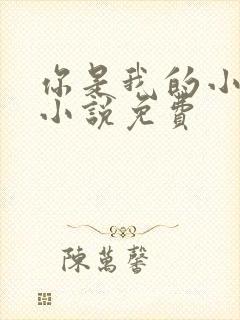 你是我的小
小說免費
陳萬馨